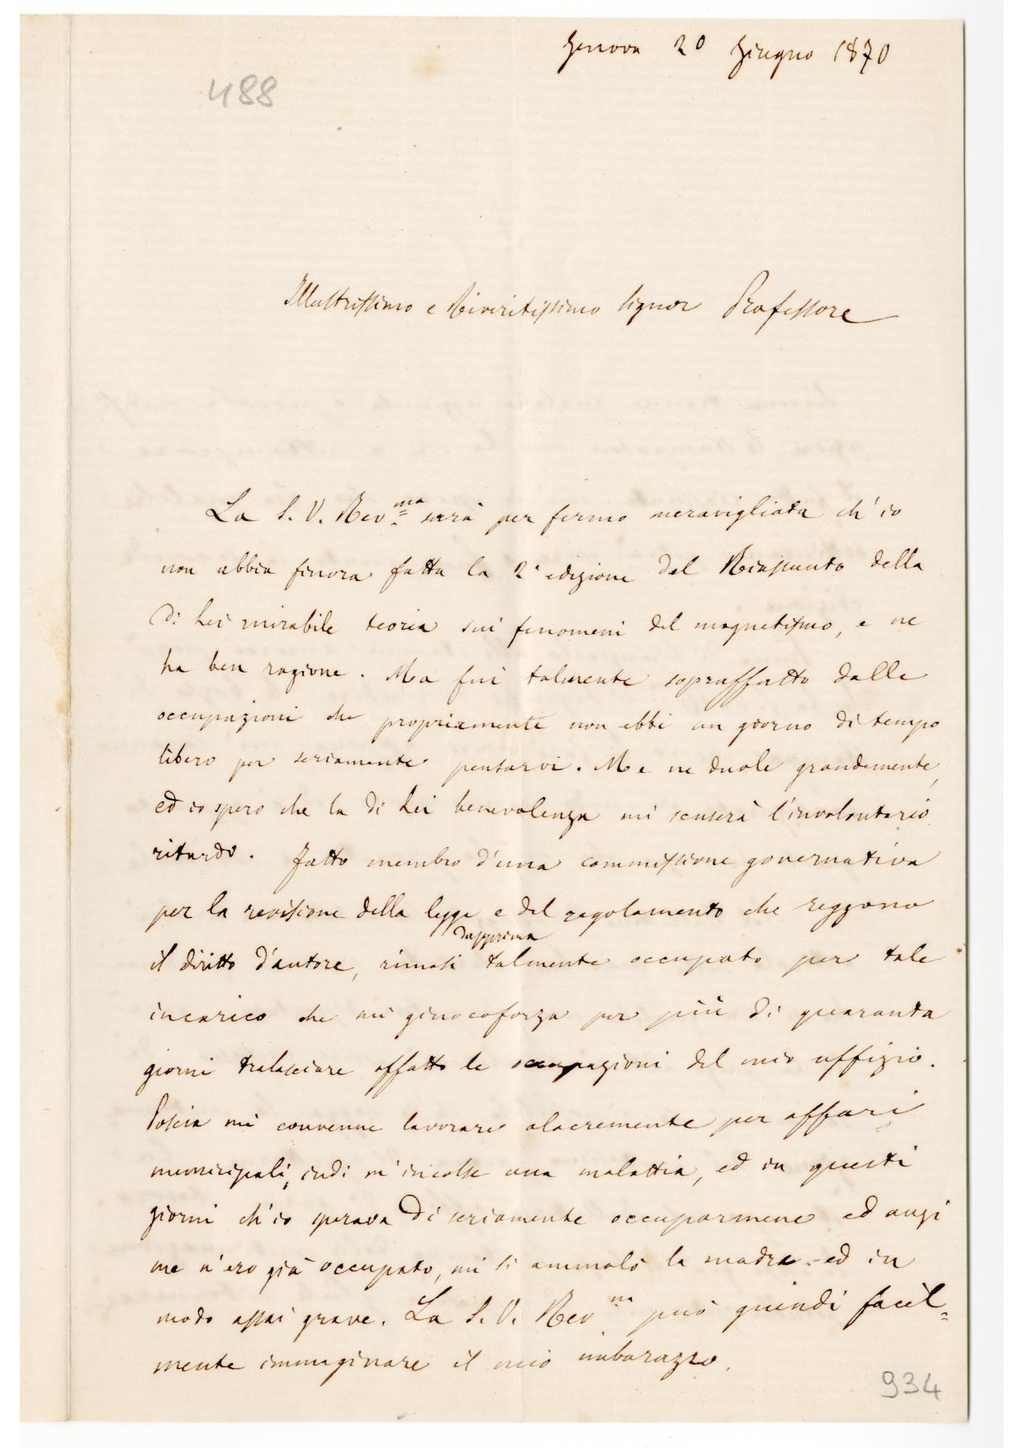 Genova 20 Giugno 1870
488
Illustrissimo e Riveritissimo Signor Professore
La S. V. Rev.ma sarà per fermo meravigliata ch'io
non abbia finora fatta la 2a edizione del Riassunto della
di Lei mirabile teoria sui fenomeni del magnetismo, e ne
ha ben ragione. Ma fui talmente sopraffatto dalle
occupazioni che propriamente non ebbi un giorno di tempo
libero per seriamente pensarvi. Me ne duole grandemente,
ed io spero che la di Lei benevolenza mi scuserà l'involontario
ritardo. Fatto membro d'una commissione governativa
per la revisione della legge e del regolamento che reggono
il diritto d'autore, rimasi dapprima talmente occupato per tale
incarico che mi fu giuocoforza per più di quaranta
giorni tralasciare affatto le occupazioni del mio uffizio.
Poscia mi convenne lavorare alacremente per affari
municipali, indi m'incolse una malattia, ed in questi
giorni ch'io sperava di seriamente occuparmene ed anzi
me n'ero già occupato, mi si ammalò la madre ed in
modo assai grave. La S. V. Rev.ma può quindi facil=
mente immaginare il mio imbarazzo.
934